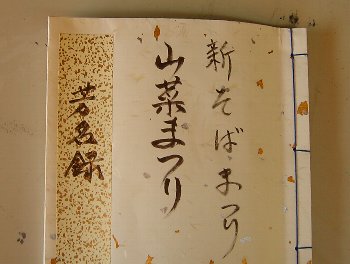 新そばまつり
山菜まつり
芳名録